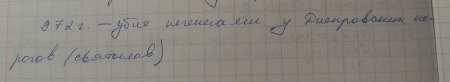 972 г. – убит печенегами у Днепровских по-
рогов (святослав)